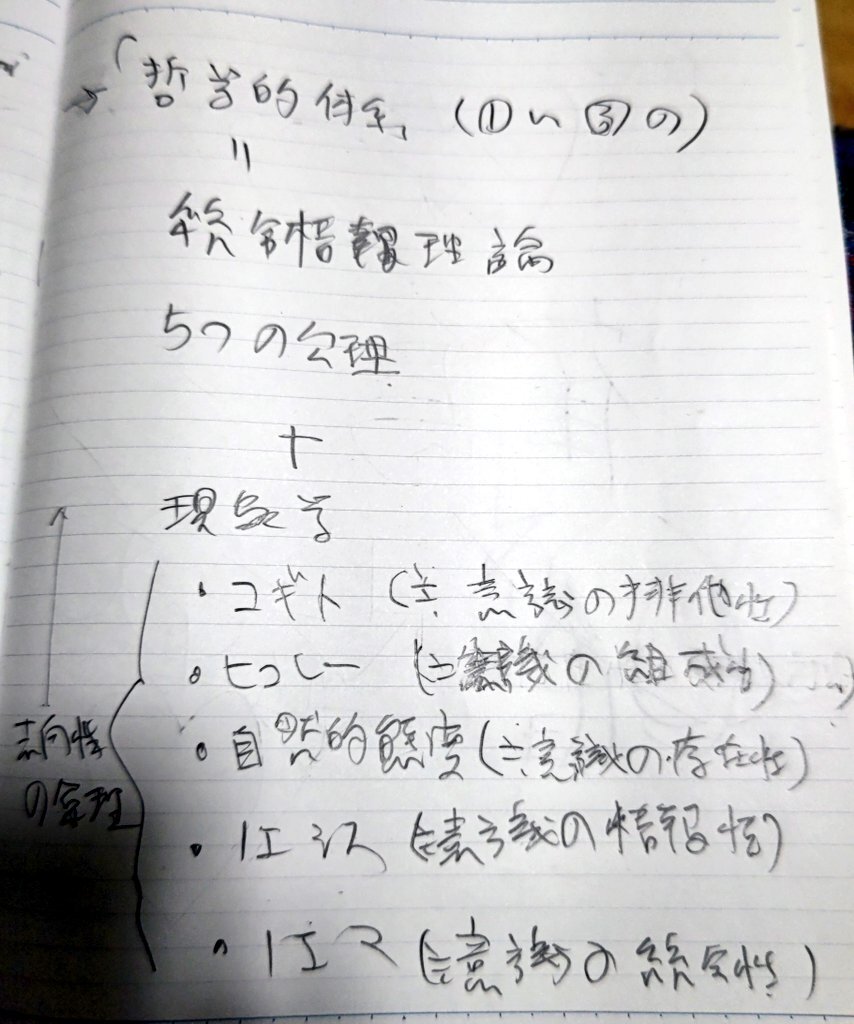 「哲学的体系」(①い③の)
=
統合情報理論
5つの公理
+
現象学
・コギト (≒意識の排他性)
・ヒュレー (≒意識の組成性)
・自然的態度 (≒意識の存在性)
・ノエシス (≒意識の情報性)
・ノエマ (≒意識の統合性)
志向性
の定理